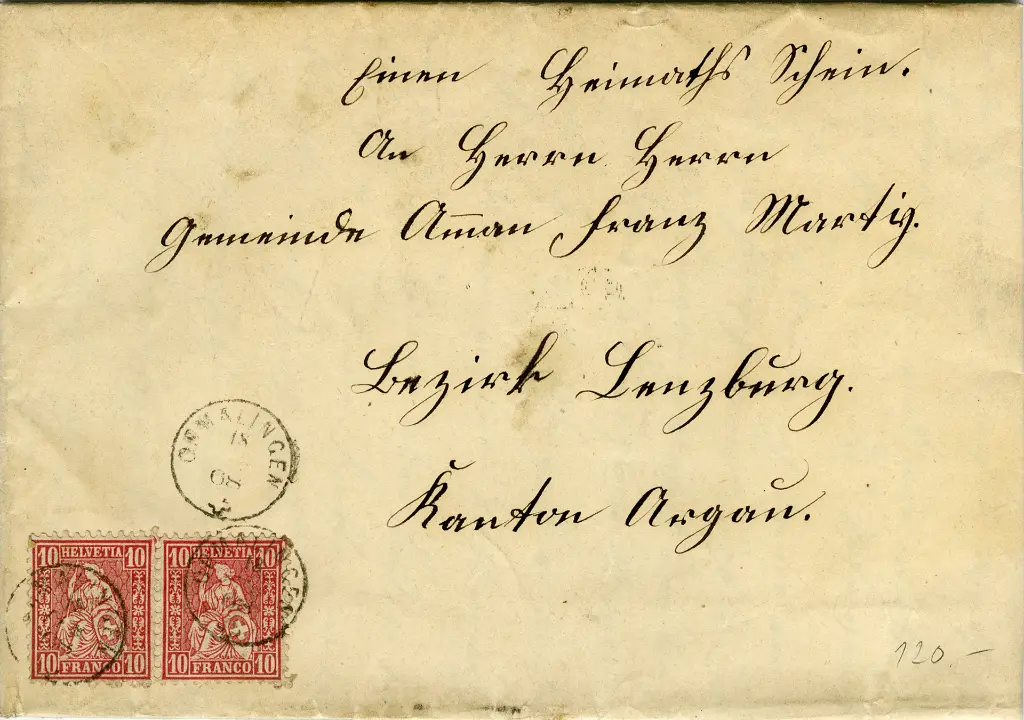 Einen Heimaths Schein.
An Herrn Herrn
Gemeinde Am̄an Franz Martiy.
Bezirk Lenzburg.
Kanton Argau.
ORMALINGEN
18
68
10 HELVETIA 10
10 FRANCO 10
10 HELVETIA 10
10 FRANCO 10
ORMALINGEN
120.–